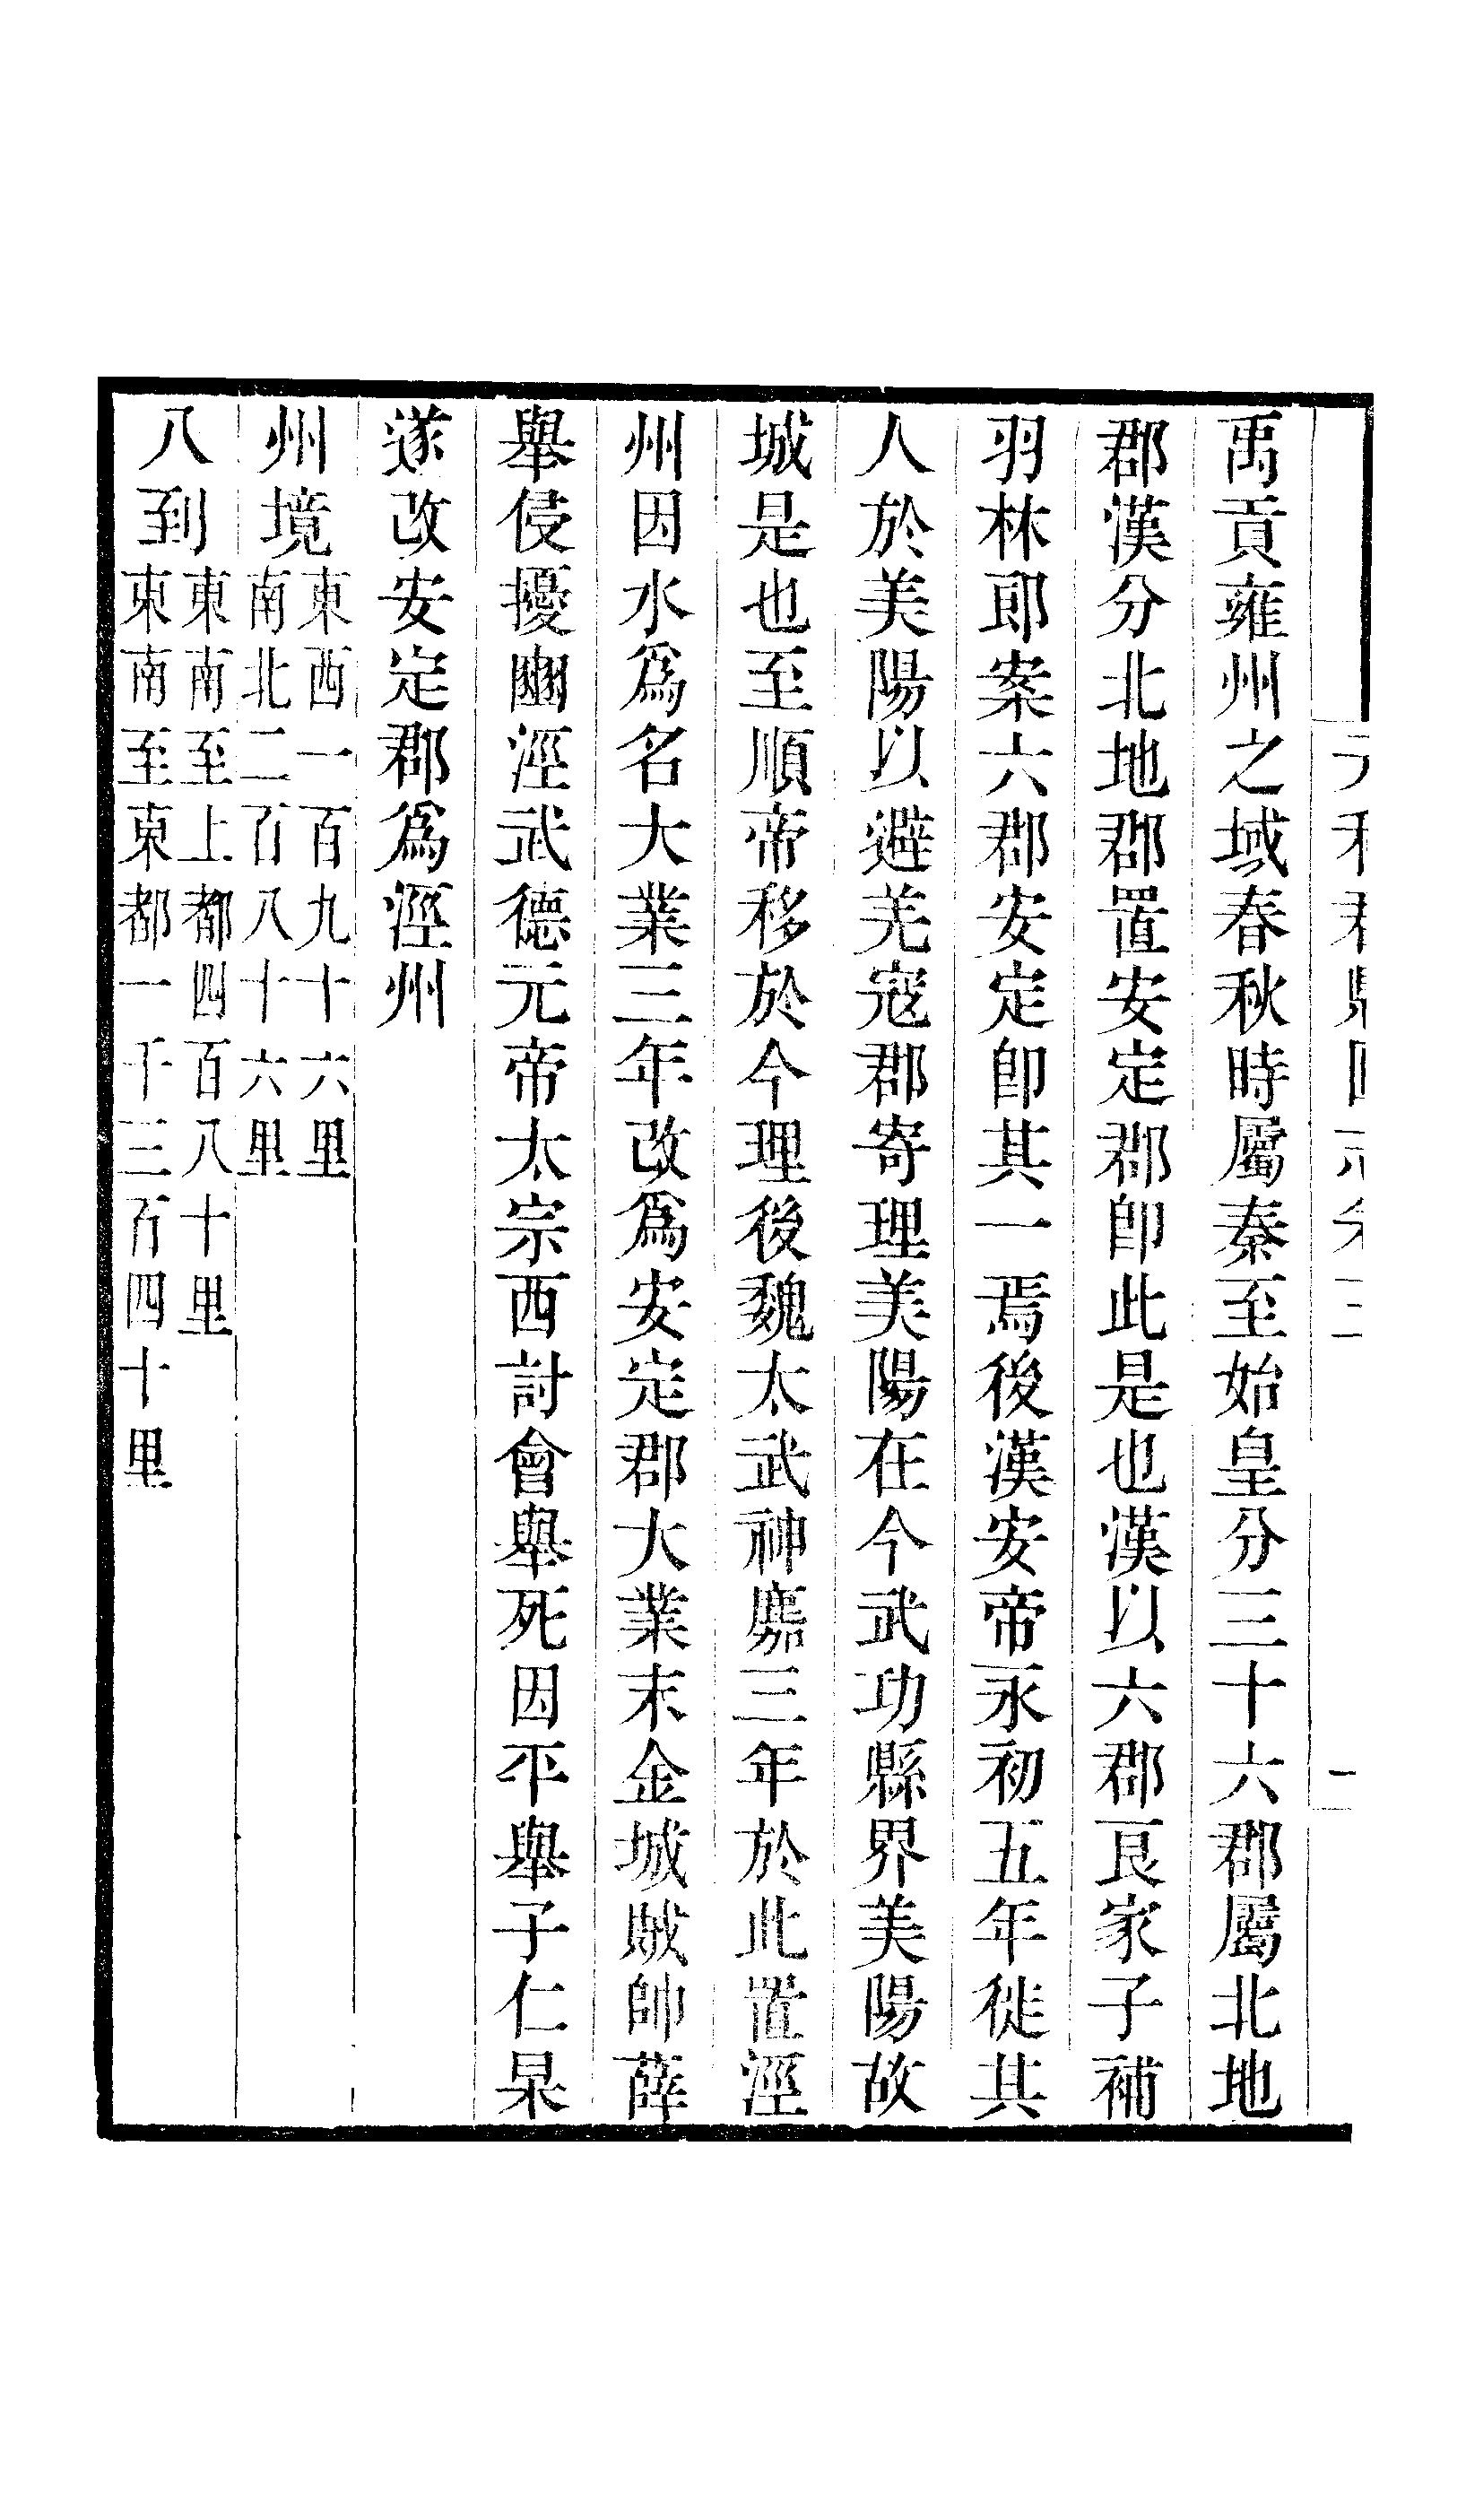 禹貢雍州之域春秋時屬秦至始皇分三十六郡屬北地
郡漢分北地郡置安定郡卽此是也漢以六郡良家子補
羽林郎案六郡安定卽其一焉後漢安帝永初五年徙其
人於美陽以避羌寇郡寄理美陽在今武功縣界美陽故
城是也至順帝移於今理後魏太武神䴥三年於此置涇
州因水爲名大業三年改爲安定郡大業末金城賊帥薛
舉侵擾豳涇武德元帝太宗西討會舉死因平舉子仁杲
遂改安定郡爲涇州
州境東西一百九十六里
南北二百八十六里
八到東南至上都四百八十里
東南至東都一千三百四十里